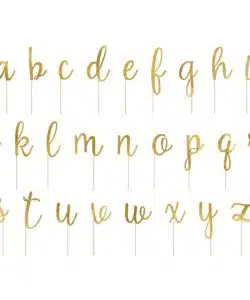 a b c d e f g h i
k l m n o p q r
s t u v w x y z